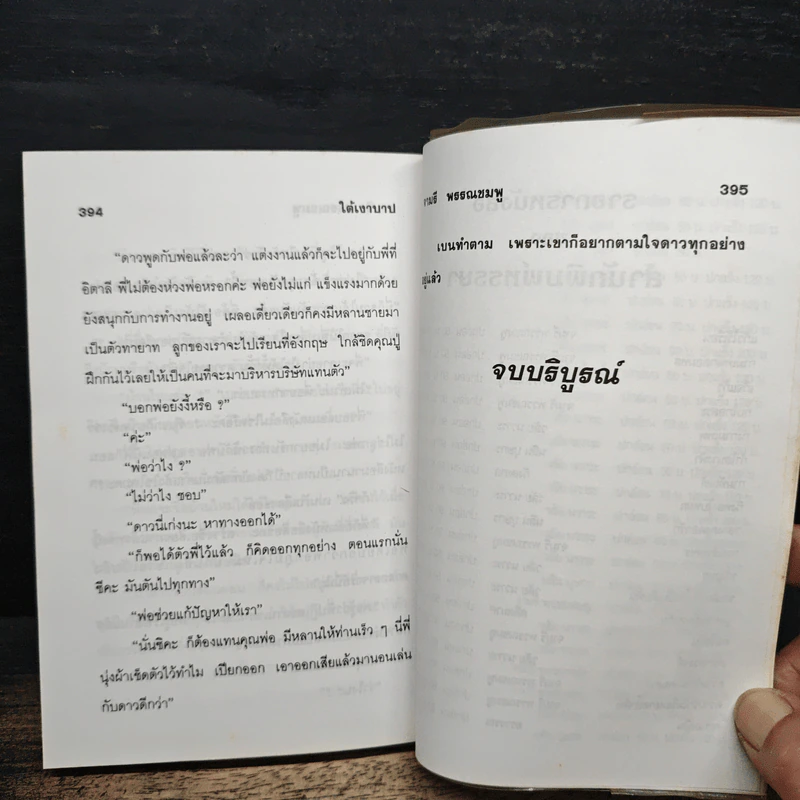 394
ใต้เงาบาป
“ดาวพูดกับพ่อแล้วละว่า แต่งงานแล้วก็จะไปอยู่กับพี่ที่
อิตาลี พี่ไม่ต้องห่วงพ่อหรอกค่ะ พ่อยังไม่แก่ แข็งแรงมากด้วย
ยังสนุกกับการทำงานอยู่ เผลอเดี๋ยวเดียวก็คงมีหลานชายมา
เป็นตัวทายาท ลูกของเราจะไปเรียนที่อังกฤษ ใกล้ชิดคุณปู่
ฝึกกันไว้เลยให้เป็นคนที่จะมาบริหารบริษัทแทนตัว”
“บอกพ่อยังงี้หรือ ?”
“ค่ะ”
“พ่อว่าไง ?”
“ไม่ว่าไง ชอบ”
“ดาวนี่เก่งนะ หาทางออกได้”
“ก็พอได้ตัวพี่ไว้แล้ว ก็คิดออกทุกอย่าง ตอนแรกนั่น
ซีคะ มันตันไปทุกทาง”
“พ่อช่วยแก้ปัญหาให้เรา”
“นั่นซิคะ ก็ต้องแทนคุณพ่อ มีหลานให้ท่านเร็ว ๆ นี่พี่
นุ่งผ้าเช็ดตัวไว้ทำไม เปียกออก เอาออกเสียแล้วมานอนเล่น
กับดาวดีกว่า”
พรรณชมพู
395
เบนทำตาม เพราะเขาก็อยากตามใจดาวทุกอย่าง
อยู่แล้ว
จบบริบูรณ์